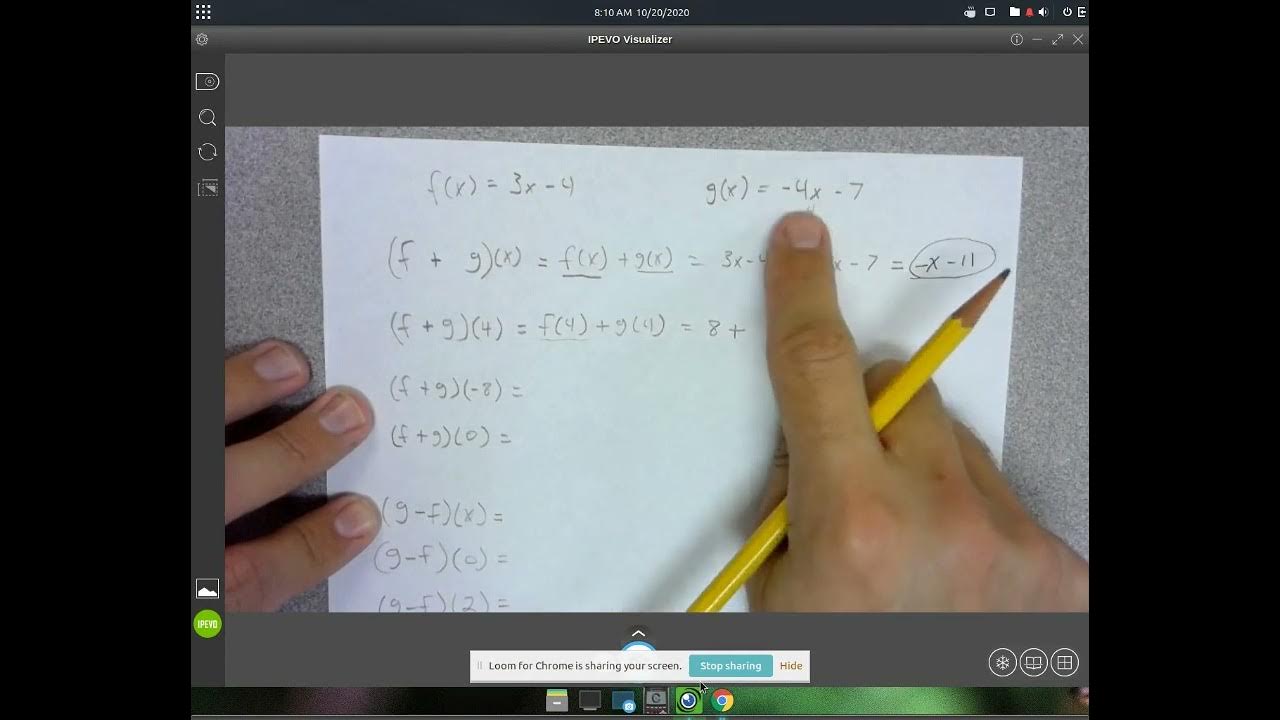 8:10 AM 10/20/2020
IPEVO Visualizer
f(x) = 3x - 4
g(x) = -4x - 7
(f + g)(x) = f(x) + g(x) = 3x - 4 x - 7 = -x - 11
(f + g)(4) = f(4) + g(4) = 8 +
(f + g)(-8) =
(f + g)(0) =
(g - f)(x) =
(g - f)(0) =
(g - f)(2) =
IPEVO
Loom for Chrome is sharing your screen. Stop sharing Hide